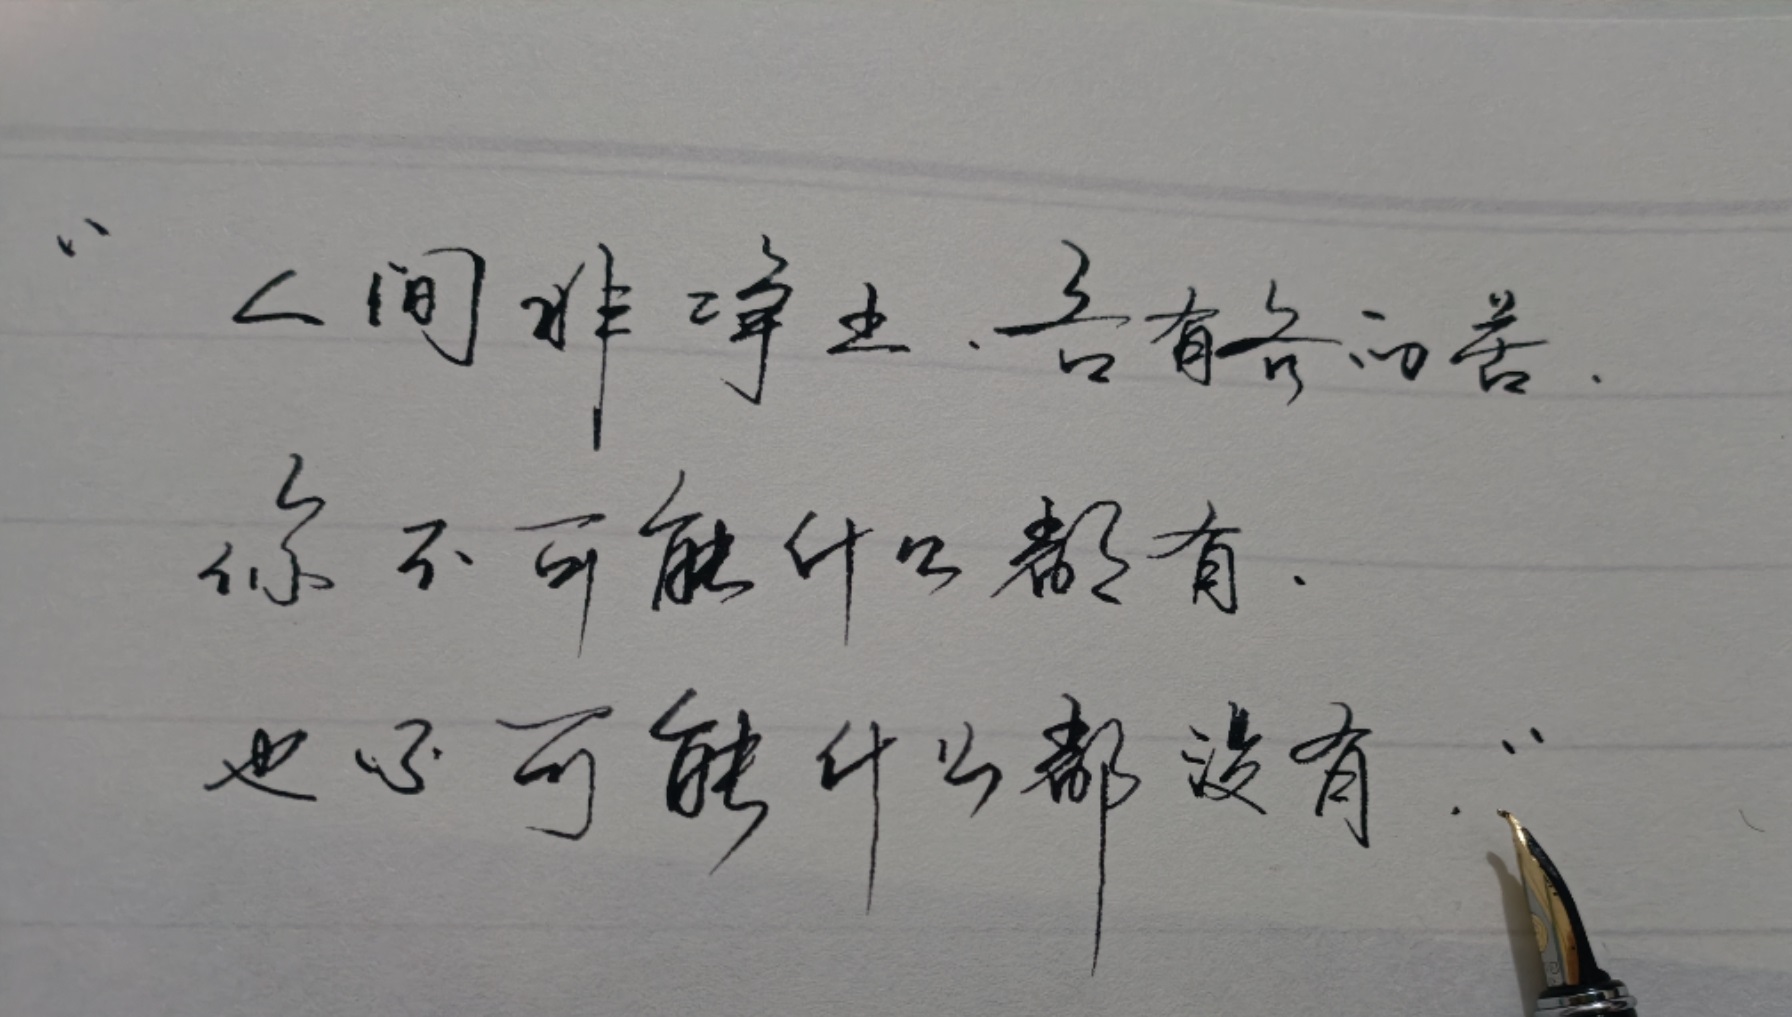 “人间非净土.各有各的苦.
你不可能什么都有.
也不可能什么都没有.”